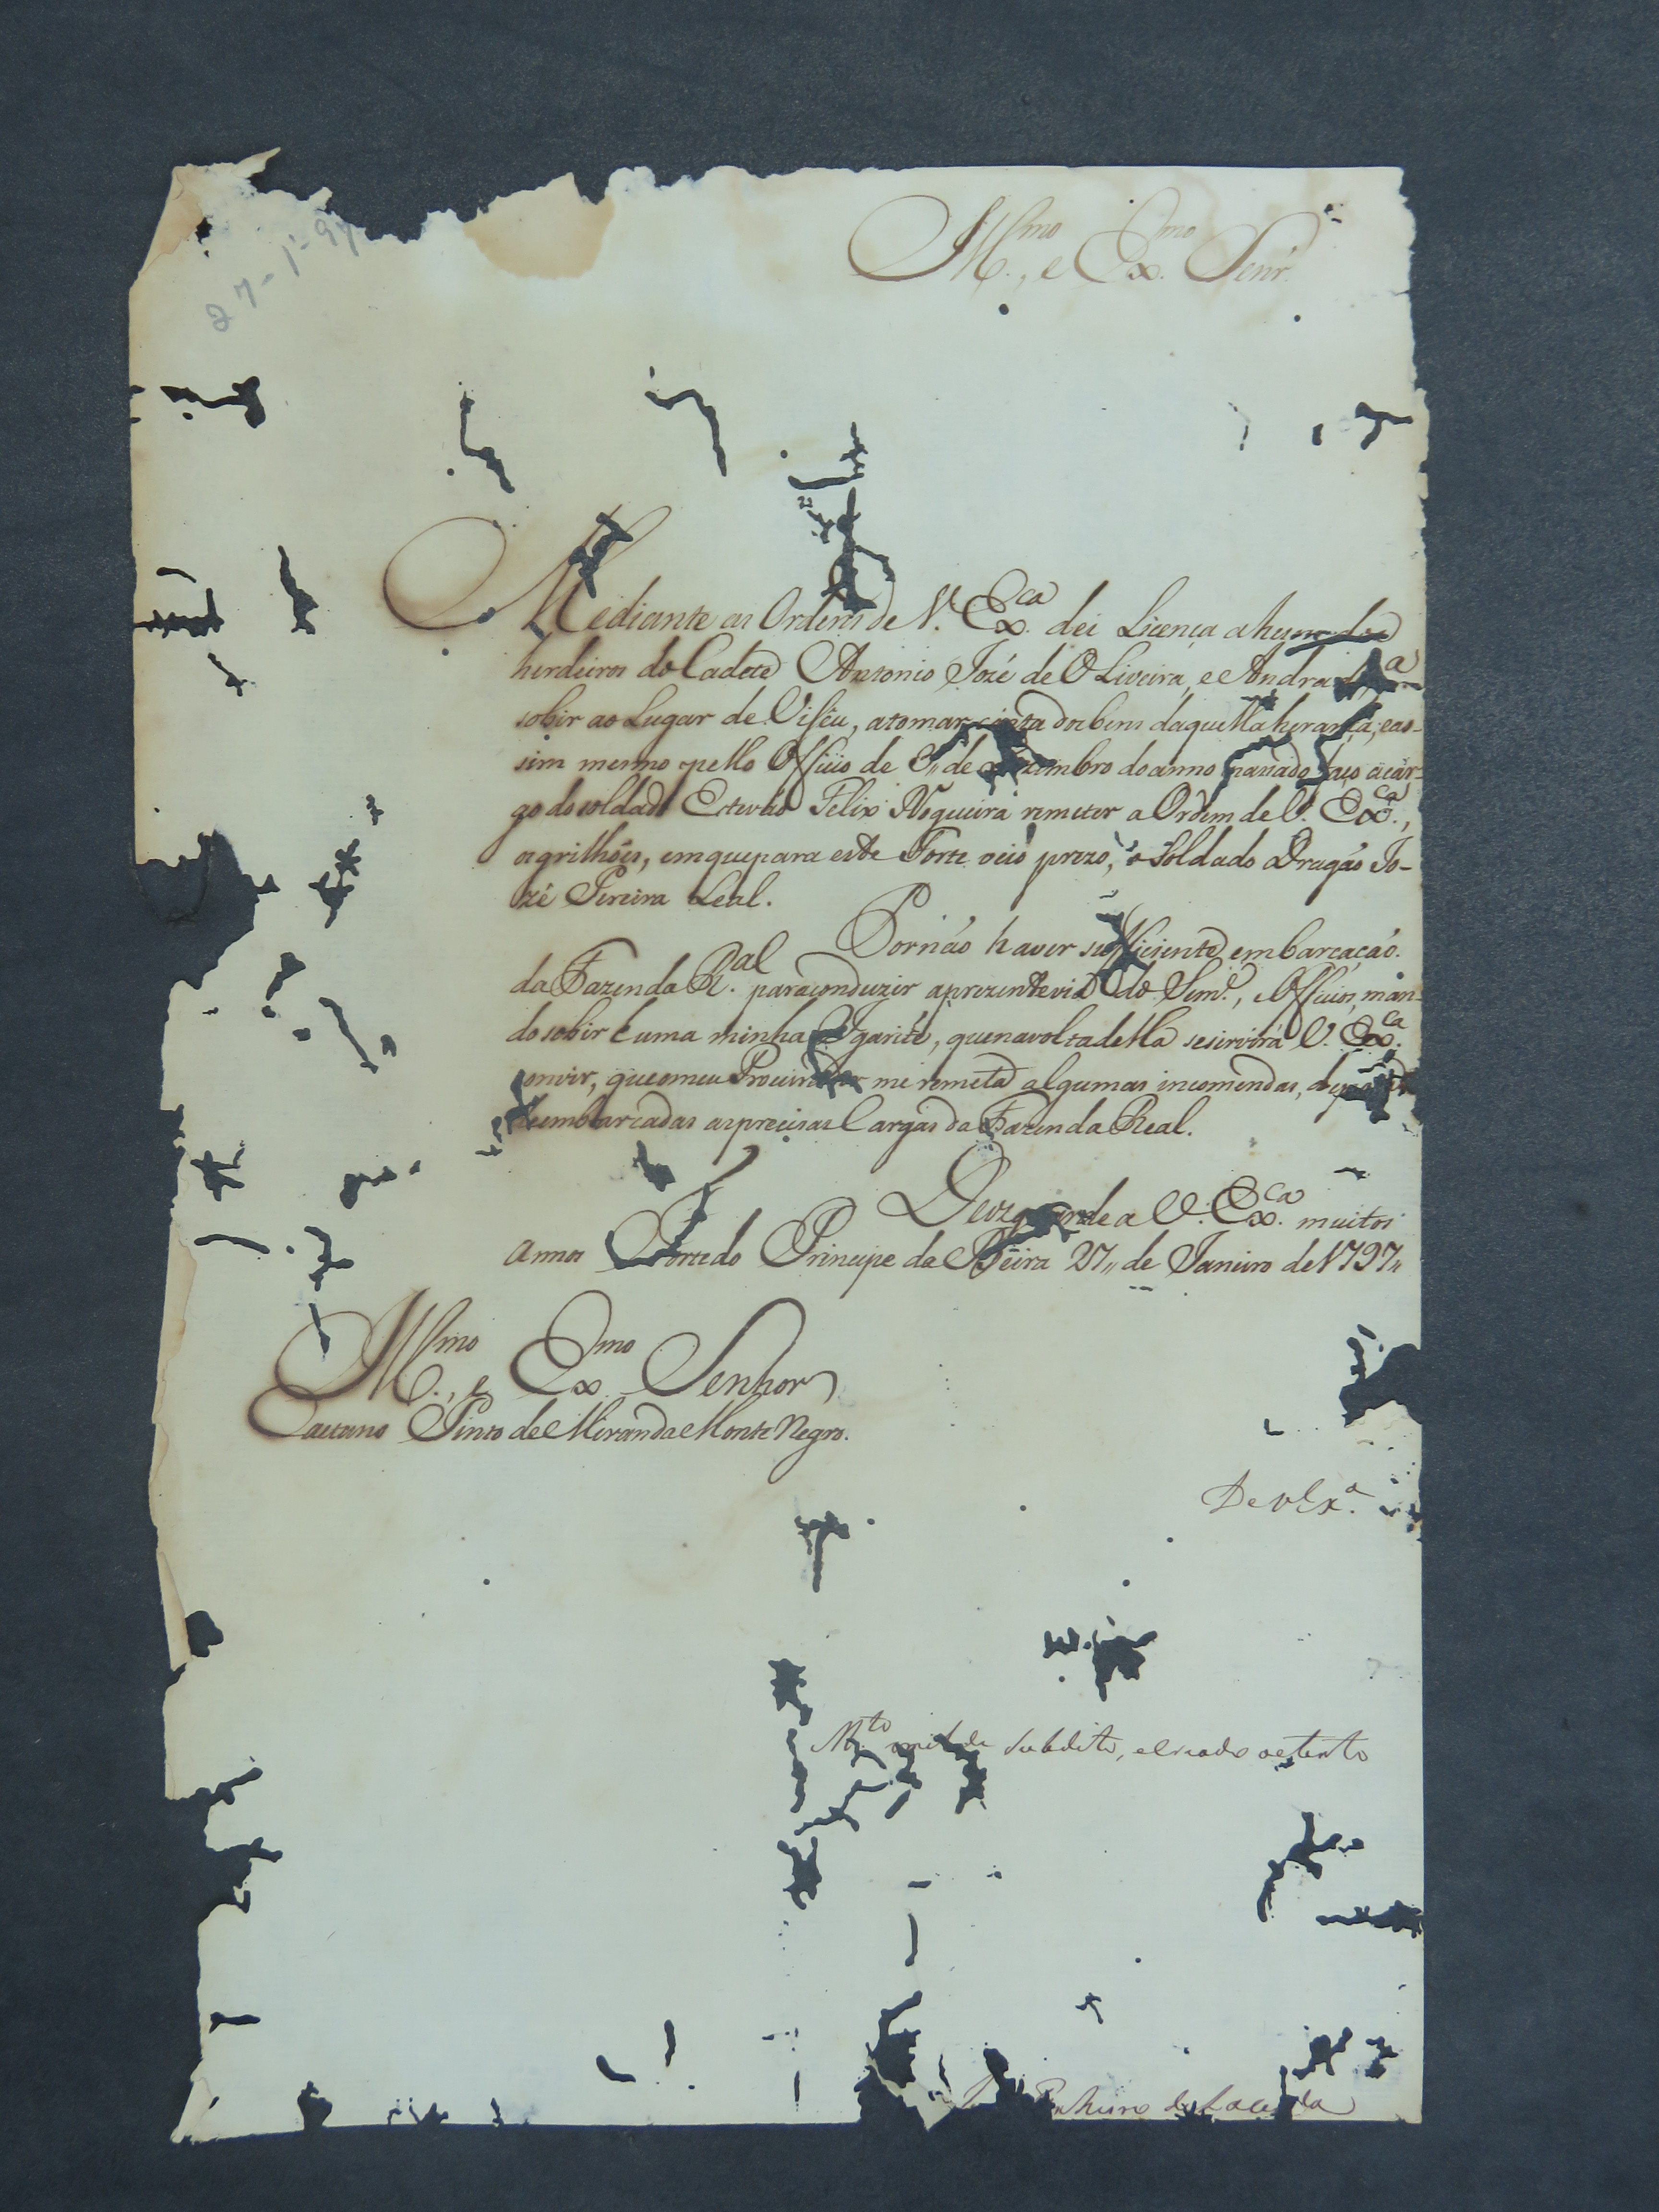 27-1-97
Ill.mo, e Ex.mo Senr.
Mediante as Ordens de V. Ex.ca dei Licença a hum dos
herdeiros do Cadete Antonio Jozé de OLiveira, e Andra a
sobir ao Lugar de Vizêu, a tomar conta dos bens daquella herança; eas-
sim mesmo pello Officio de 3,, de do anno passado, faço acar-
go do soldado Estevão Felix Nogueira remeter a Ordem de V. Ex.ca,
os grilhões, em que para este Forte veio prezo, o Soldado Dragão Jo-
zé Pereira Leal.
Por não haver sufficiente embarcação
da Fazenda R.al para conduzir a prezente via do Sem.e, e Officios, man-
do sobir huma minha Igarité, que na volta della se sirvirá V. Ex.ca
convir, que o meu Procurador me remeta algumas incomendas,
embarcadas as precisas Cargas da Fazenda Real.
Deos guarde a V. Ex.ca muitos
annos Forte do Principe da Beira 27,, de Janeiro de 1797,,
Ill.mo, e Ex.mo Senhor
Caetano Pinto de Miranda Monte Negro.
De V Ex.a
M.to subdito, e criado atento
Pinheiro de Lacerda